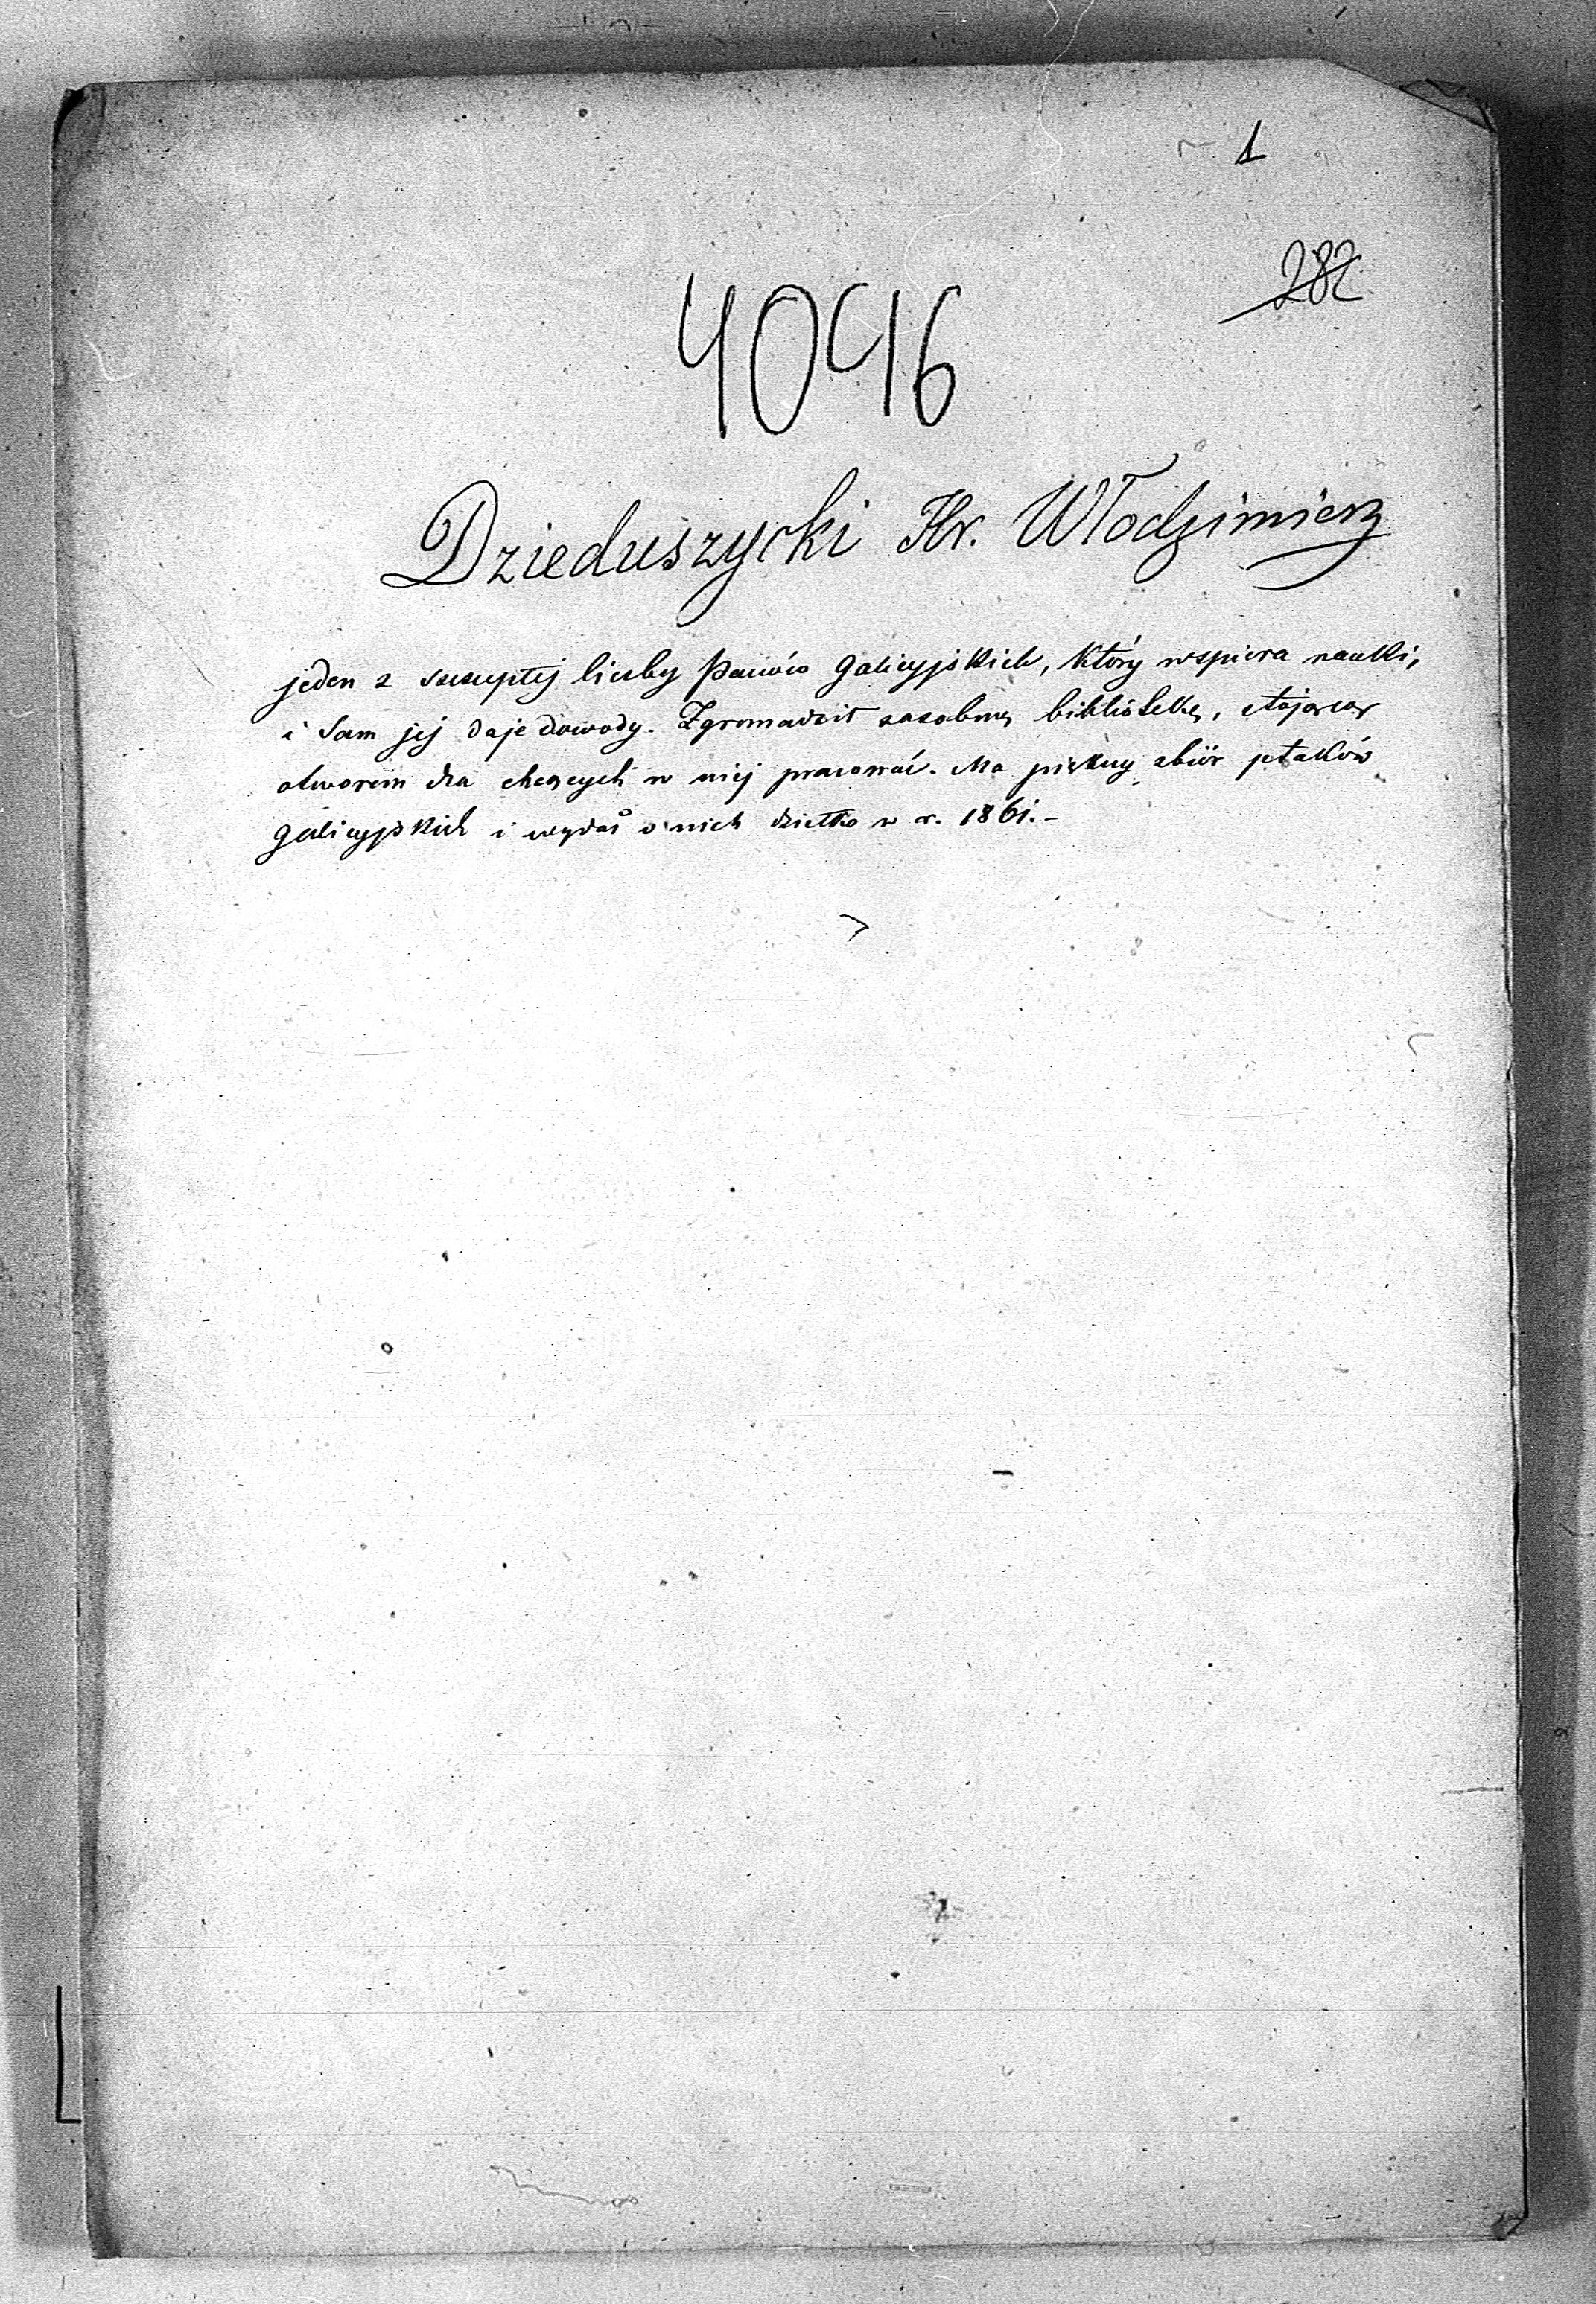 1
282
4046
Dzieduszycki Hr. Włodzimierz
jeden z szczupłej liczby panów galicyjskich, który wspiera nauki,
i sam jej daje dowody. Zgromadził zasobną bibliotekę, stojącą
otworem dla chcących w niej pracować. Ma piękny zbiór ptaków
galicyjskich i wydał o nich dziełko w r. 1861.-